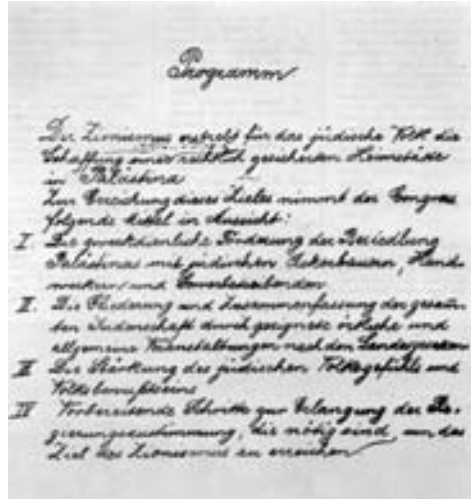 Programm
Der Zionismus erstrebt für das jüdische Volk die
Schaffung einer rechtlich gesicherten Heimstätte
in Palästina
Zur Erreichung dieses Zieles nimmt der Congress
folgende Mittel in Aussicht:
I. Die zweckdienliche Förderung der Besiedlung
Palästinas mit jüdischen Ackerbauern, Hand-
werkern und Gewerbetreibenden
II. Die Gliederung und Zusammenfassung der gesam-
ten Judenschaft durch geeignete örtliche und
allgemeine Veranstaltungen nach den Landesgesetzen
III Die Stärkung des jüdischen Volksgefühls und
Volksbewußtseins
IV Vorbereitende Schritte zur Erlangung der Re-
gierungszustimmung, die nötig sind um das
Ziel des Zionismus zu erreichen